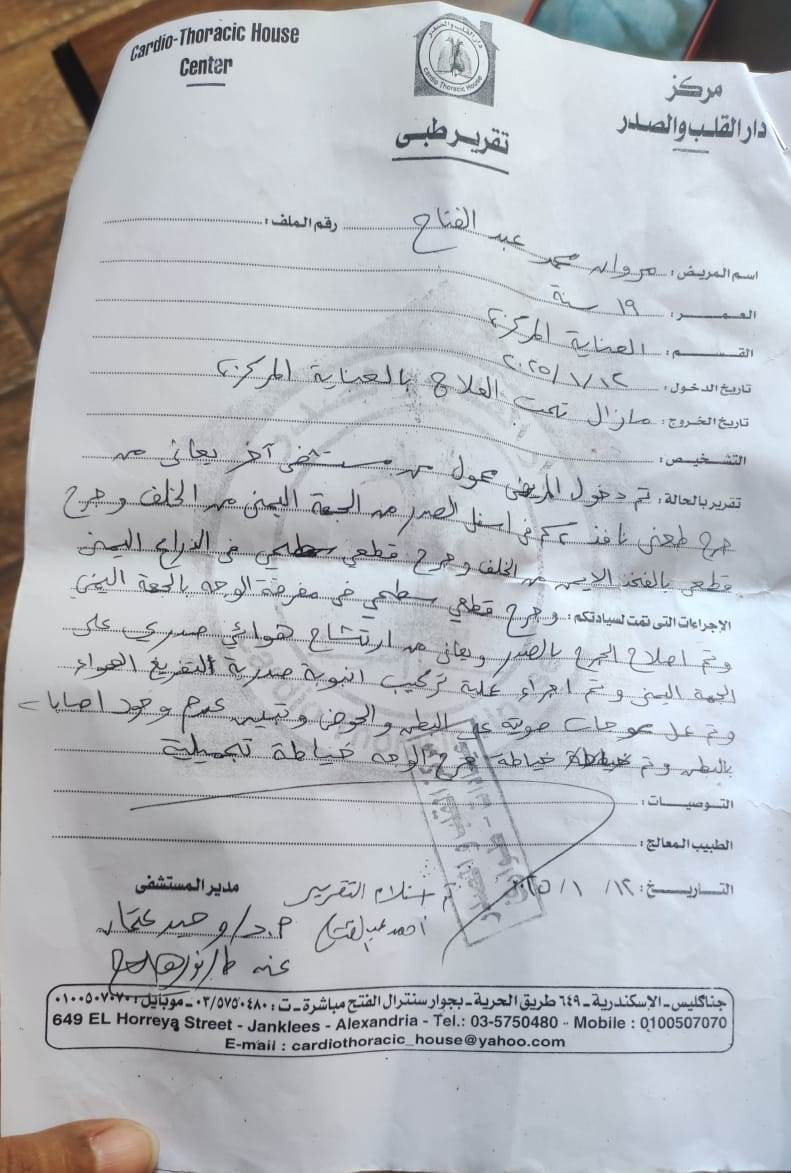 Cardio-Thoracic House
Center
دار القلب والصدر
Cardio Thoracic House
مركز
دار القلب والصدر
تقرير طبى
رقم الملف :
اسم المريض : مروان محمد عبد الفتاح
العمر : ١٩ سنة
القسم : العناية المركزة
تاريخ الدخول : ٢٠٢٥/١/١٢
تاريخ الخروج : مازال تحت العلاج بالعناية المركزة
التشخيص :
تقرير بالحالة : تم دخول المريض محول من مستشفى آخر يعانى من
جرح طعنى نافذ ٢ سم فى اسفل الصدر من الجهة اليمنى من الخلف وجرح
قطعى بالفخذ الايمن من الخلف وجرح قطعى سطحى فى الذراع اليمنى
الإجراءات التى تمت لسيادتكم : وجرح قطعى سطحى فى الوجه بالجهة اليمنى
وتم اصلاح الجرح بالصدر ويعانى من ارتشاح هوائى صدرى على
الجهة اليمنى وتم اجراء عملية تركيب انبوبة صدرية لتفريغ الهواء
وتم عمل موجات صوتية على البطن والحوض وتبين عدم وجود اصابات
بالبطن وتم خياطة جرح الوجه خياطة تجميلية
التوصيات :
الطبيب المعالج :
التاريخ : ٢٠٢٥/١/١٢
تم استلام التقرير
احمد عبد الفتاح
مدير المستشفى
أ.د/ وحيد عثمان
عنه ط/
جناكليس - الاسكندرية - ٦٤٩ طريق الحرية - بجوار سنترال الفتح مباشرة - ت : ٠٣/٥٧٥٠٤٨٠ - موبايل : ٠١٠٠٥٠٧٠٧٠
649 EL Horreya Street - Janklees - Alexandria - Tel.: 03-5750480 - Mobile : 0100507070
E-mail : cardiothoracic_house@yahoo.com